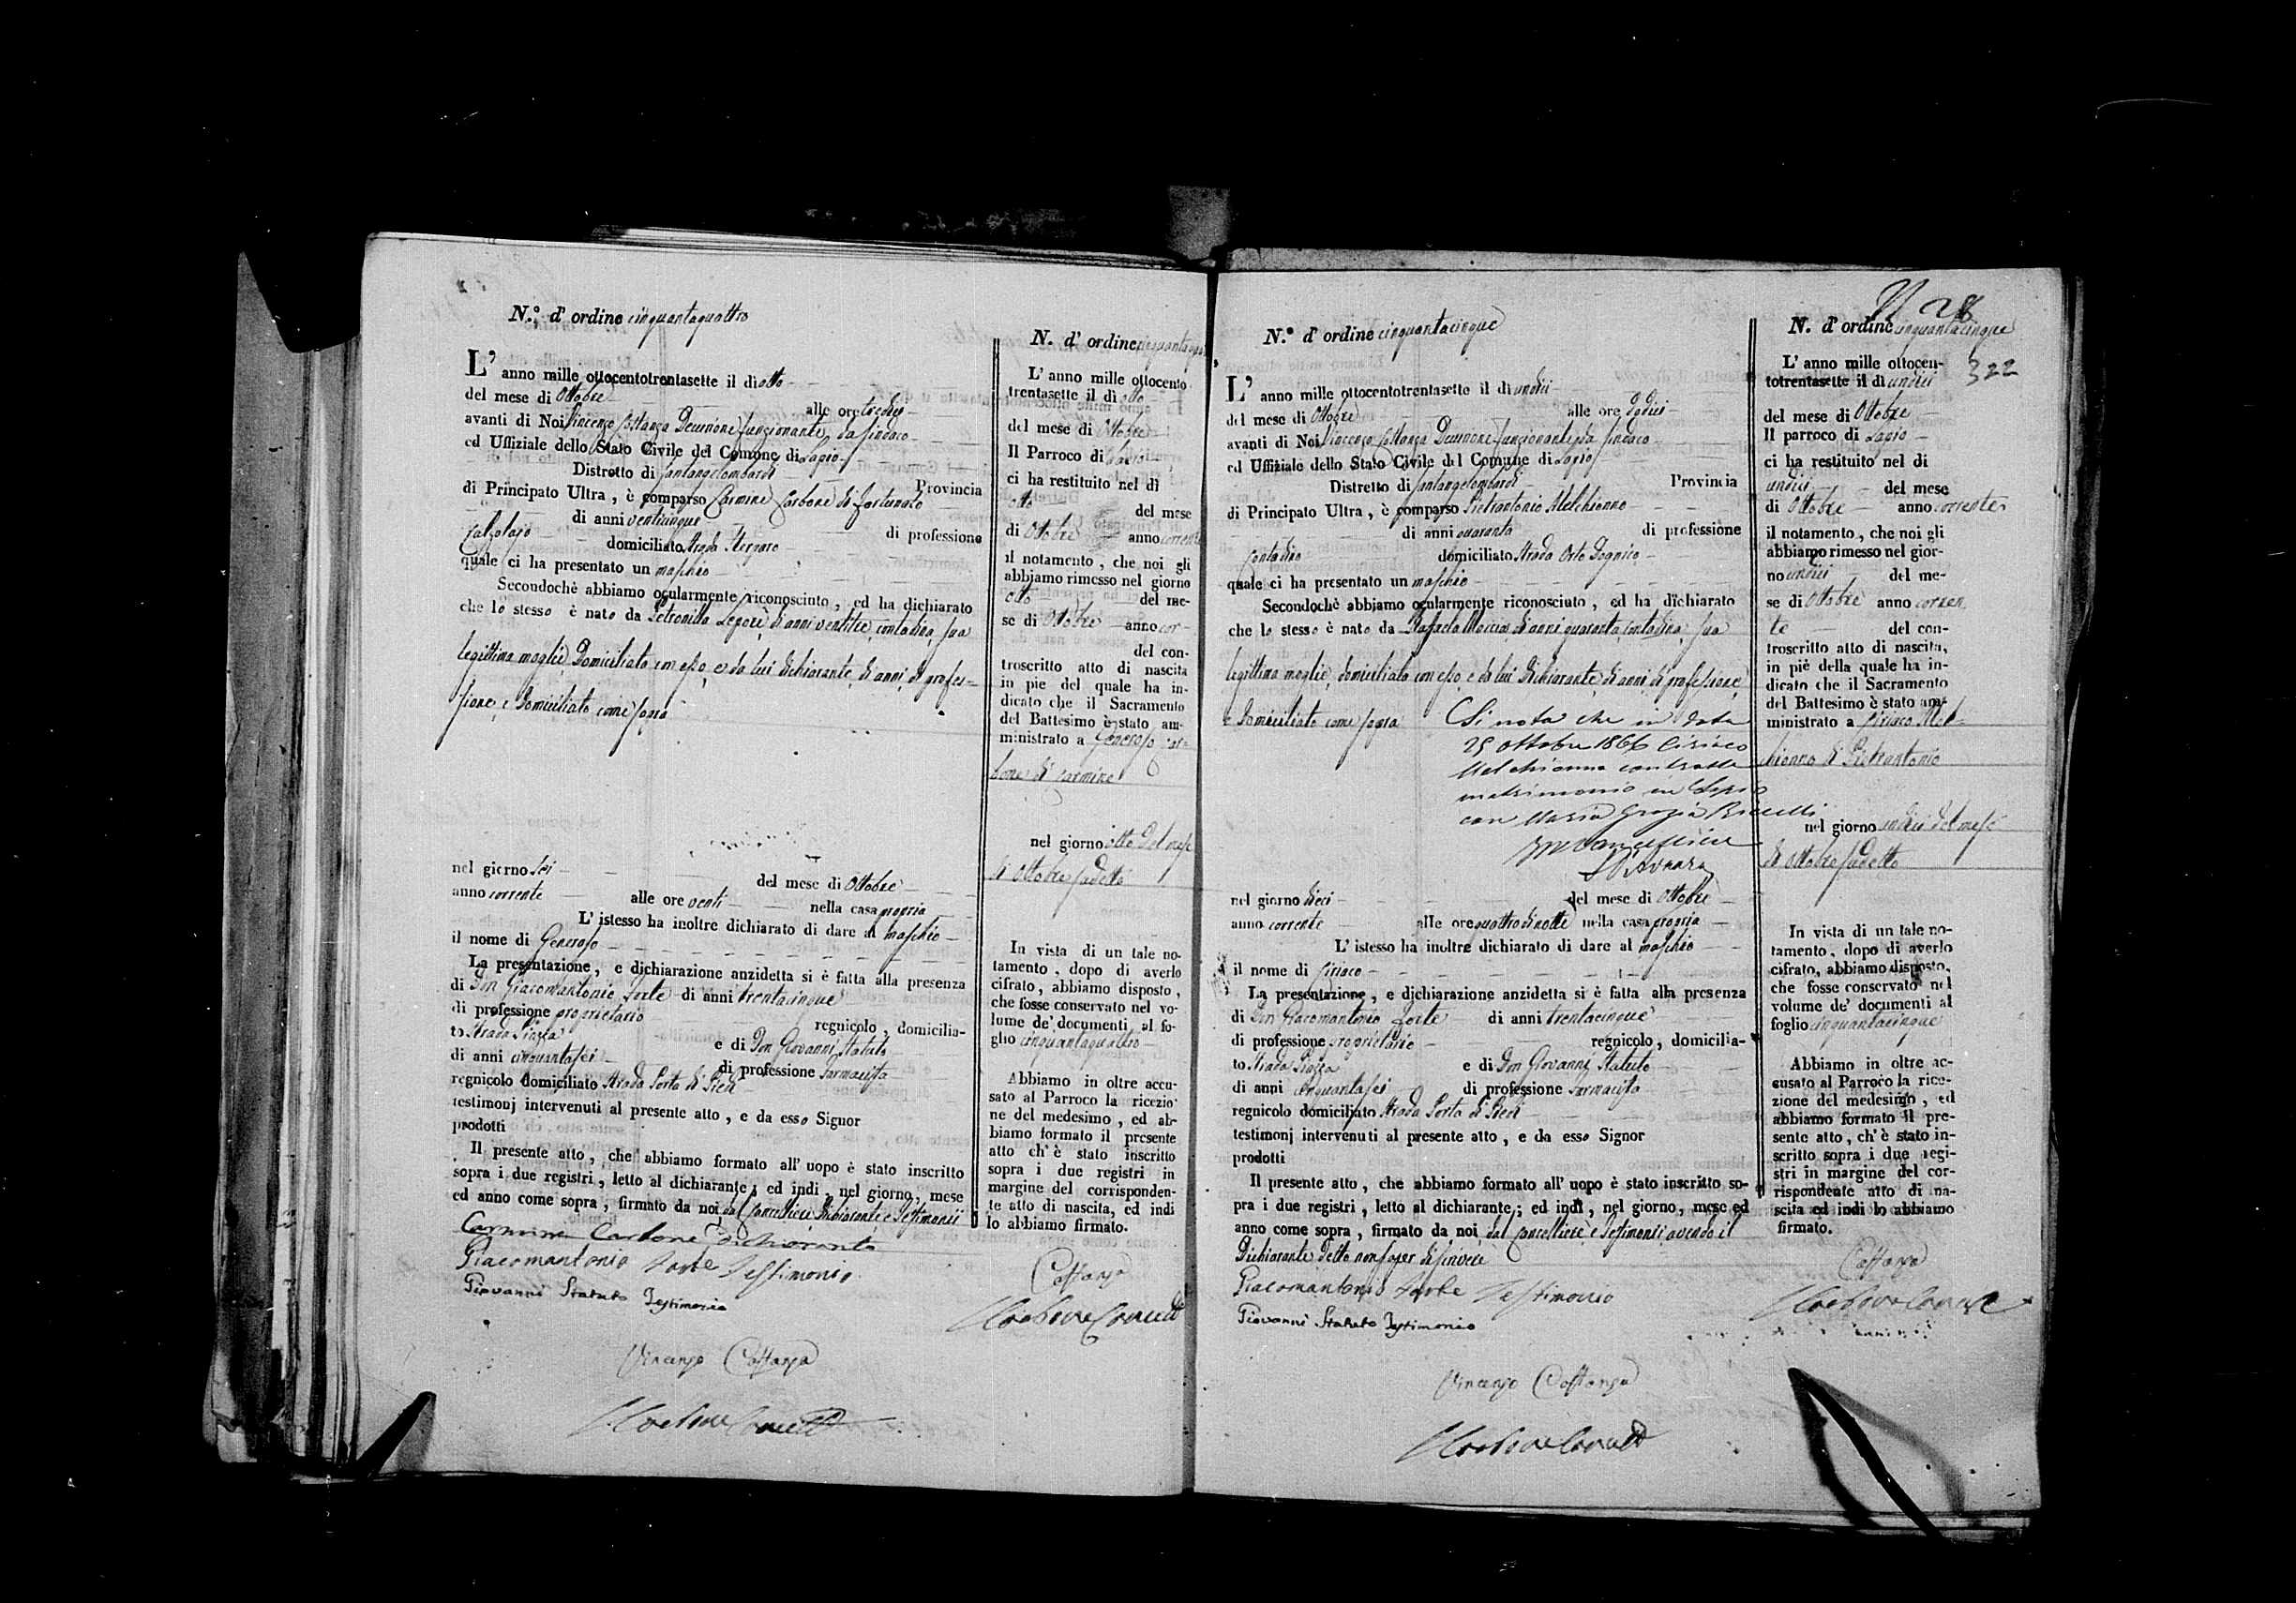 N.º d' ordine cinquantaquattro
L' anno mille ottocentotrentasette il dì otto
del mese di Ottobre alle ore tredici
avanti di Noi Vincenzo Costanza Decurione funzionante da Sindaco
ed Uffiziale dello Stato Civile del Comune di Lapio
Distretto di Santangelombardi Provincia
di Principato Ultra, è comparso Carmine Carbone di Fortunato
di anni venticinque di professione
Calzolajo domiciliato Strada
quale ci ha presentato un maschio
Secondochè abbiamo ocularmente riconosciuto, ed ha dichiarato
che lo stesso è nato da Petronilla Lepore di anni ventitre, contadina, sua
legittima moglie, domiciliata con esso, e da lui dichiarante, di anni, di profes-
sione, e domiciliato come sopra
nel giorno sei del mese di Ottobre
anno corrente alle ore venti nella casa propria
L' istesso ha inoltre dichiarato di dare al maschio
il nome di Generoso
La presentazione, e dichiarazione anzidetta si è fatta alla presenza
di Don Giacomantonio Forte di anni trentacinque
di professione proprietario regnicolo, domicilia-
to Strada Piazza e di Don Giovanni Statuto
di anni cinquantasei di professione Farmacista
regnicolo domiciliato Strada Porta di Piedi
testimonj intervenuti al presente atto, e da esso Signor
prodotti
Il presente atto, che abbiamo formato all' uopo è stato inscritto
sopra i due registri, letto al dichiarante; ed indi, nel giorno, mese
ed anno come sopra, firmato da noi, dal Cancelliere, Dichiarante, e Testimonii
Carmine Carbone dichiarante
Giacomantonio Forte Testimonio
Giovanni Statuto Testimonio
Vincenzo Costanza
N. d' ordine
L' anno mille ottocento
trentasette il dì otto
del mese di Ottobre
Il Parroco di Lapio
ci ha restituito nel dì
otto del mese
di Ottobre anno corrente
il notamento, che noi gli
abbiamo rimesso nel giorno
otto del me-
se di Ottobre anno cor-
del con-
troscritto atto di nascita
in pie del quale ha in-
dicato che il Sacramento
del Battesimo è stato am-
ministrato a Generoso Car-
bone di Carmine
nel giorno otto del mese
di Ottobre sudetto
In vista di un tale no-
tamento, dopo di averlo
cifrato, abbiamo disposto,
che fosse conservato nel vo-
lume de' documenti al fo-
glio cinquantaquattro
Abbiamo in oltre accu-
sato al Parroco la ricezio-
ne del medesimo, ed ab-
biamo formato il presente
atto ch' è stato inscritto
sopra i due registri in
margine del corrisponden-
te atto di nascita, ed indi
lo abbiamo firmato.
Costanza
N.º d' ordine cinquantacinque
L' anno mille ottocentotrentasette il dì undici
del mese di Ottobre alle ore dodici
avanti di Noi Vincenzo Costanza Decurione funzionante da Sindaco
ed Uffiziale dello Stato Civile del Comune di Lapio
Distretto di Santangelombardi Provincia
di Principato Ultra, è comparso Pietrantonio Melchionno
di anni quaranta di professione
Contadino domiciliato Strada Orto
quale ci ha presentato un maschio
Secondochè abbiamo ocularmente riconosciuto, ed ha dichiarato
che lo stesso è nato da Rafaela Moccia, di anni quaranta, contadina, sua
legittima moglie, domiciliata con esso, e da lui Dichiarante, di anni, di professione,
e domiciliato come sopra
Si nota che in data
25 ottobre 1866 Ciriaco
Melchionna contrasse
matrimonio in Lapio
con Maria Grazia
nel giorno dieci del mese di Ottobre
anno corrente alle ore quattro di notte nella casa propria
L' istesso ha inoltre dichiarato di dare al maschio
il nome di Ciriaco
La presentazione, e dichiarazione anzidetta si è fatta alla presenza
di Don Giacomantonio Forte di anni trentacinque
di professione proprietario regnicolo, domicilia-
to Strada Piazza e di Don Giovanni Statuto
di anni cinquantasei di professione Farmacista
regnicolo domiciliato Strada Porta di Piedi
testimonj intervenuti al presente atto, e da esso Signor
prodotti
Il presente atto, che abbiamo formato all' uopo è stato inscritto so-
pra i due registri, letto al dichiarante; ed indi, nel giorno, mese ed
anno come sopra, firmato da noi, dal Cancelliere e Testimonii avendo il
Dichiarante detto non saper di scrivere
Giacomantonio Forte Testimonio
Giovanni Statuto Testimonio
Vincenzo Costanza
N. d' ordine cinquantacinque
322
L' anno mille ottocen-
totrentasette il dì undici
del mese di Ottobre
Il parroco di Lapio
ci ha restituito nel di
undici del mese
di Ottobre anno corrente
il notamento, che noi gli
abbiamo rimesso nel gior-
no undici del me-
se di Ottobre anno corren
te del con-
troscritto atto di nascita,
in piè della quale ha in-
dicato che il Sacramento
del Battesimo è stato am-
ministrato a Ciriaco Mel-
chionno di Pietrantonio
nel giorno undici del mese
di Ottobre sudetto
In vista di un tale no-
tamento, dopo di averlo
cifrato, abbiamo disposto,
che fosse conservato nel
volume de' documenti al
foglio cinquantacinque
Abbiamo in oltre ac-
cusato al Parroco la rice-
zione del medesimo, ed
abbiamo formato il pre-
sente atto, ch' è stato in-
scritto sopra i due regi-
stri in margine del cor-
rispondente atto di na-
scita ed indi lo abbiamo
firmato.
Costanza